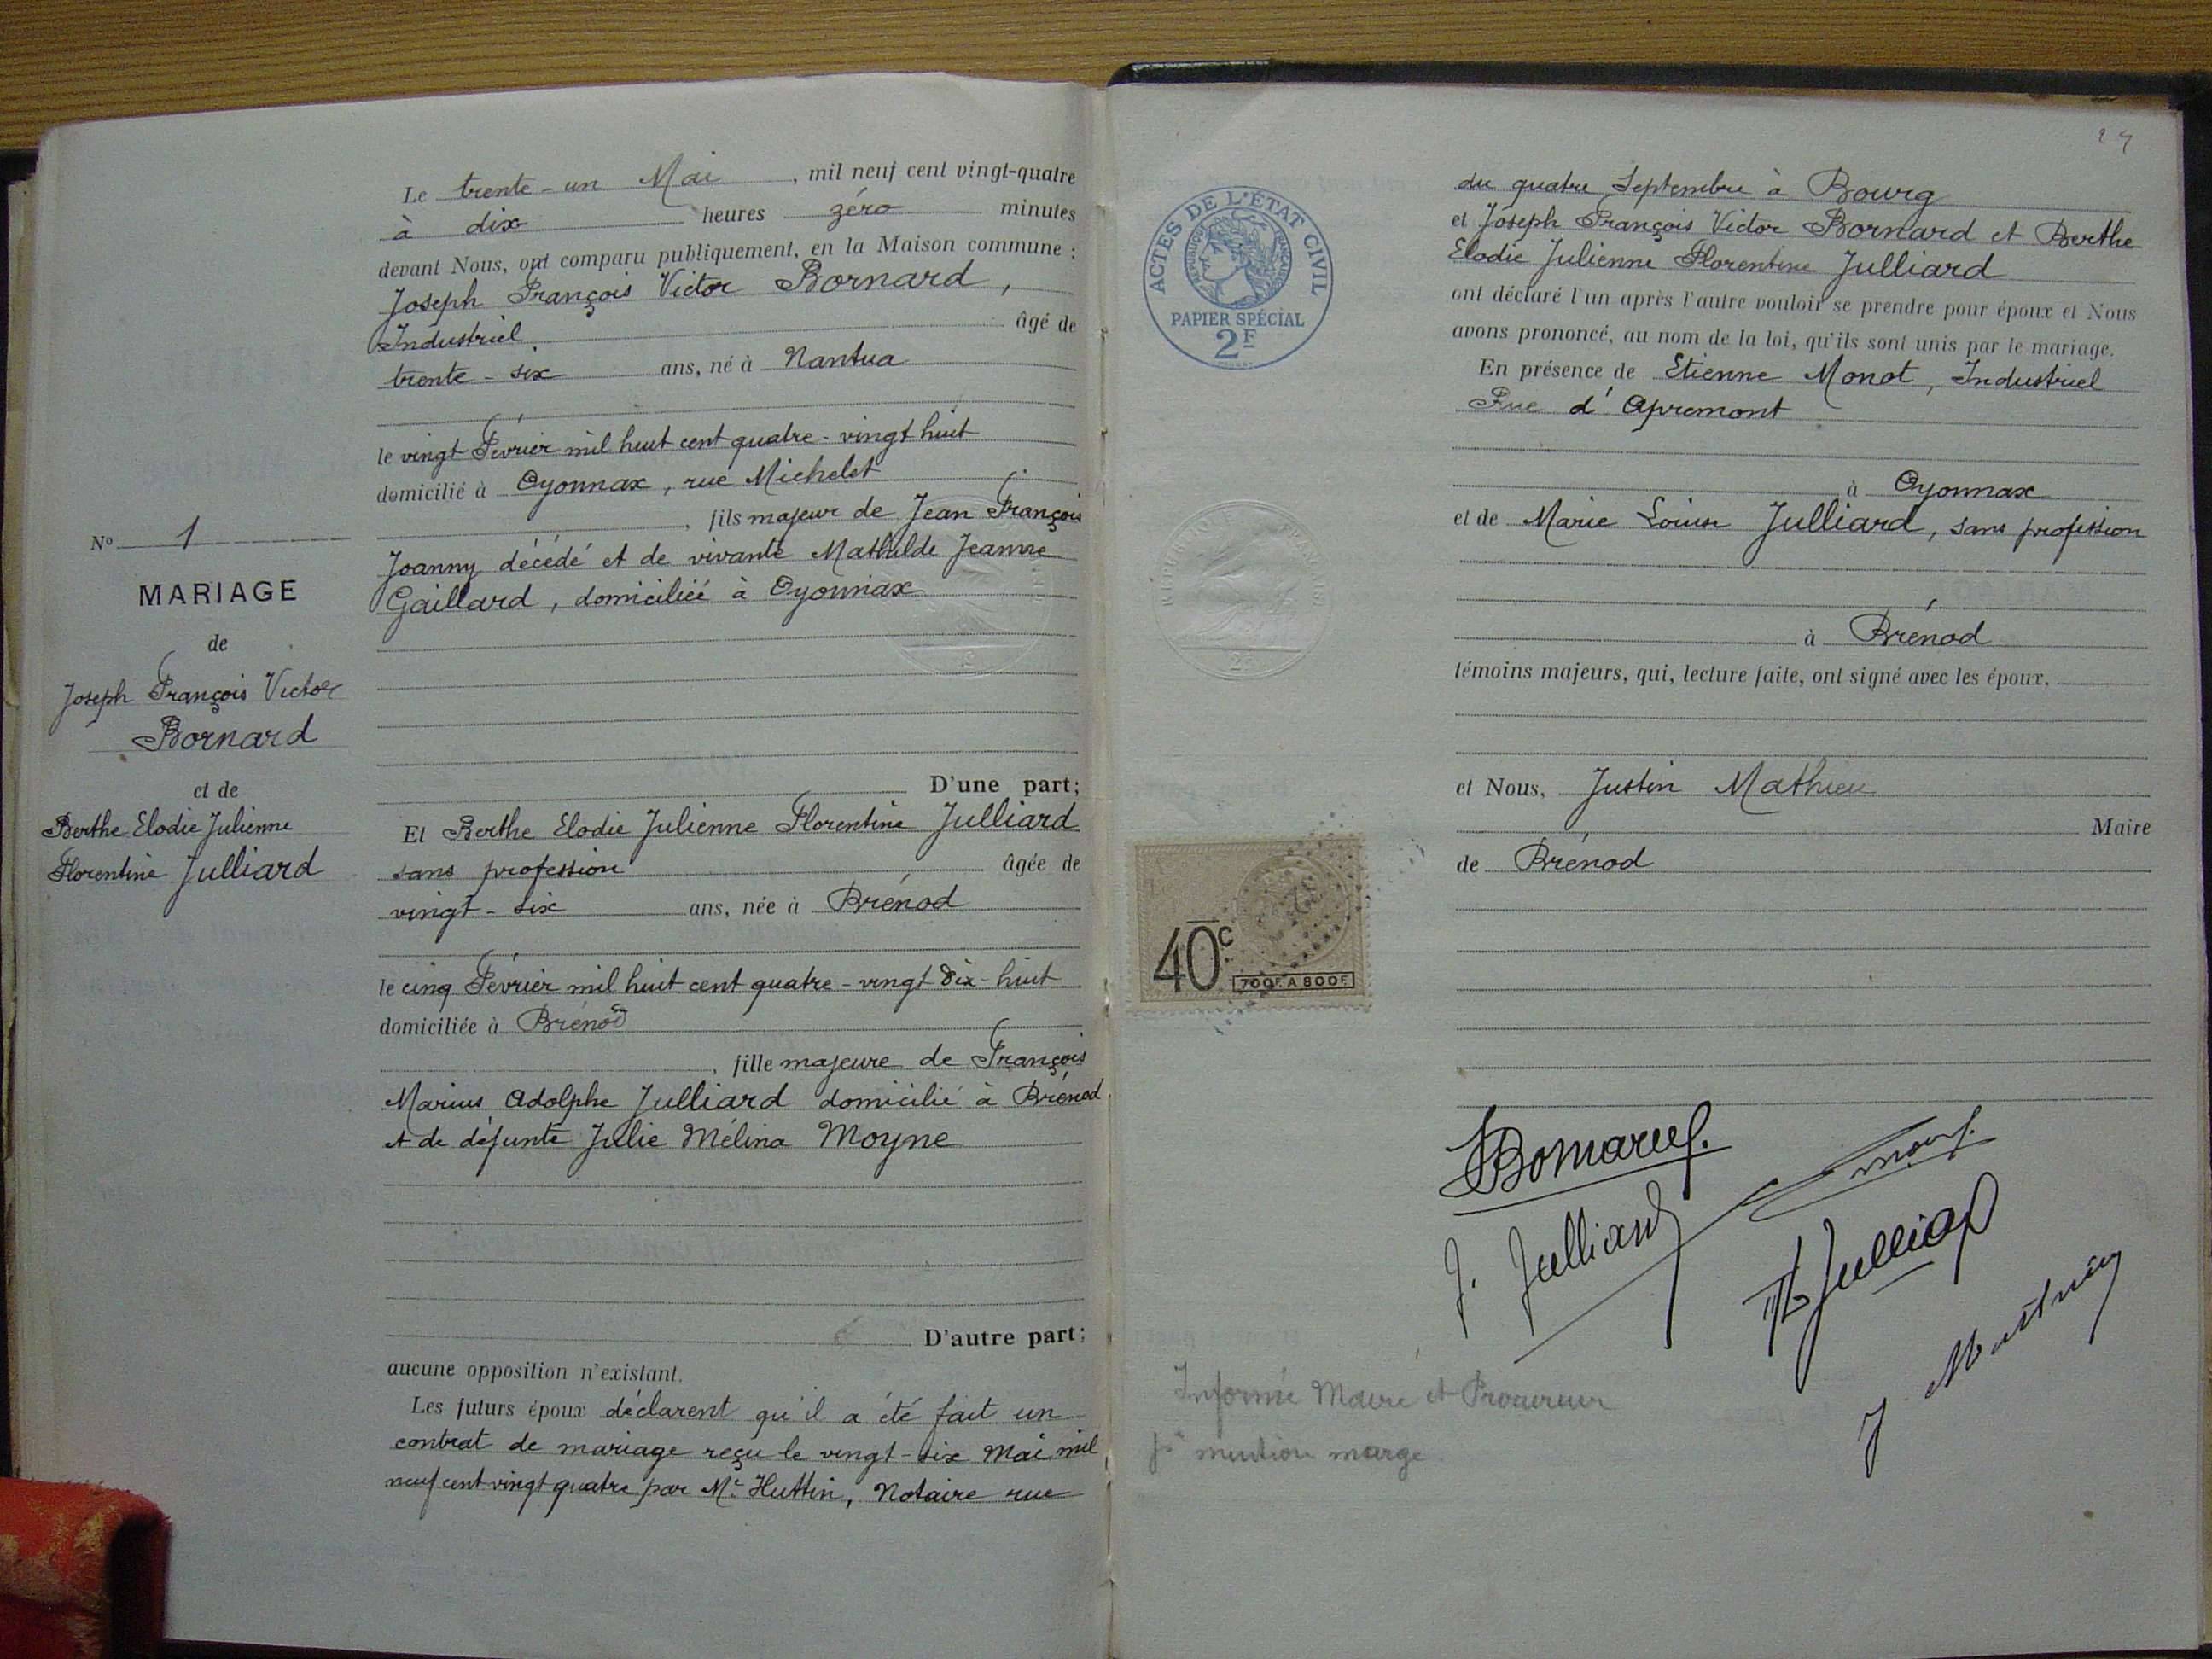 Nº 1
MARIAGE
de
Joseph François Victor
Bornard
et de
Berthe Elodie Julienne
Florentine Julliard
Le trente-un Mai, mil neuf cent vingt-quatre
à dix heures zéro minutes
devant Nous, ont comparu publiquement, en la Maison commune :
Joseph François Victor Bornard,
Industriel âgé de
trente-six ans, né à Nantua
le vingt Février mil huit cent quatre-vingt huit
domicilié à Oyonnax, rue Michelet
, fils majeur de Jean François
Joanny décédé et de vivante Mathilde Jeanne
Gaillard, domiciliée à Oyonnax
D'une part;
Et Berthe Elodie Julienne Florentine Julliard
sans profession âgée de
vingt-six ans, née à Brénod
le cinq Février mil huit cent quatre-vingt dix-huit
domiciliée à Brénod
, fille majeure de François
Marius Adolphe Julliard domicilié à Brénod
et de défunte Julie Mélina Moyne
D'autre part;
aucune opposition n'existant.
Les futurs époux déclarent qu'il a été fait un
contrat de mariage reçu le vingt-six Mai mil
neuf cent vingt quatre par Mᵉ Huttin, Notaire rue
ACTES DE L'ÉTAT CIVIL
RÉPUBLIQUE FRANÇAISE
PAPIER SPÉCIAL
2F
40c
700F A 800F
du quatre Septembre à Bourg
et Joseph François Victor Bornard et Berthe
Elodie Julienne Florentine Julliard
ont déclaré l'un après l'autre vouloir se prendre pour époux et Nous
avons prononcé, au nom de la loi, qu'ils sont unis par le mariage.
En présence de Etienne Monot, Industriel
Rue d'Apremont
à Oyonnax
et de Marie Louise Julliard, sans profession
à Brénod
témoins majeurs, qui, lecture faite, ont signé avec les époux,
et Nous, Justin Mathieu
Maire
de Brénod
Bornard
J. Julliard
Julliard
J Mathieu
Informé Maire et Procureur
mention marge.